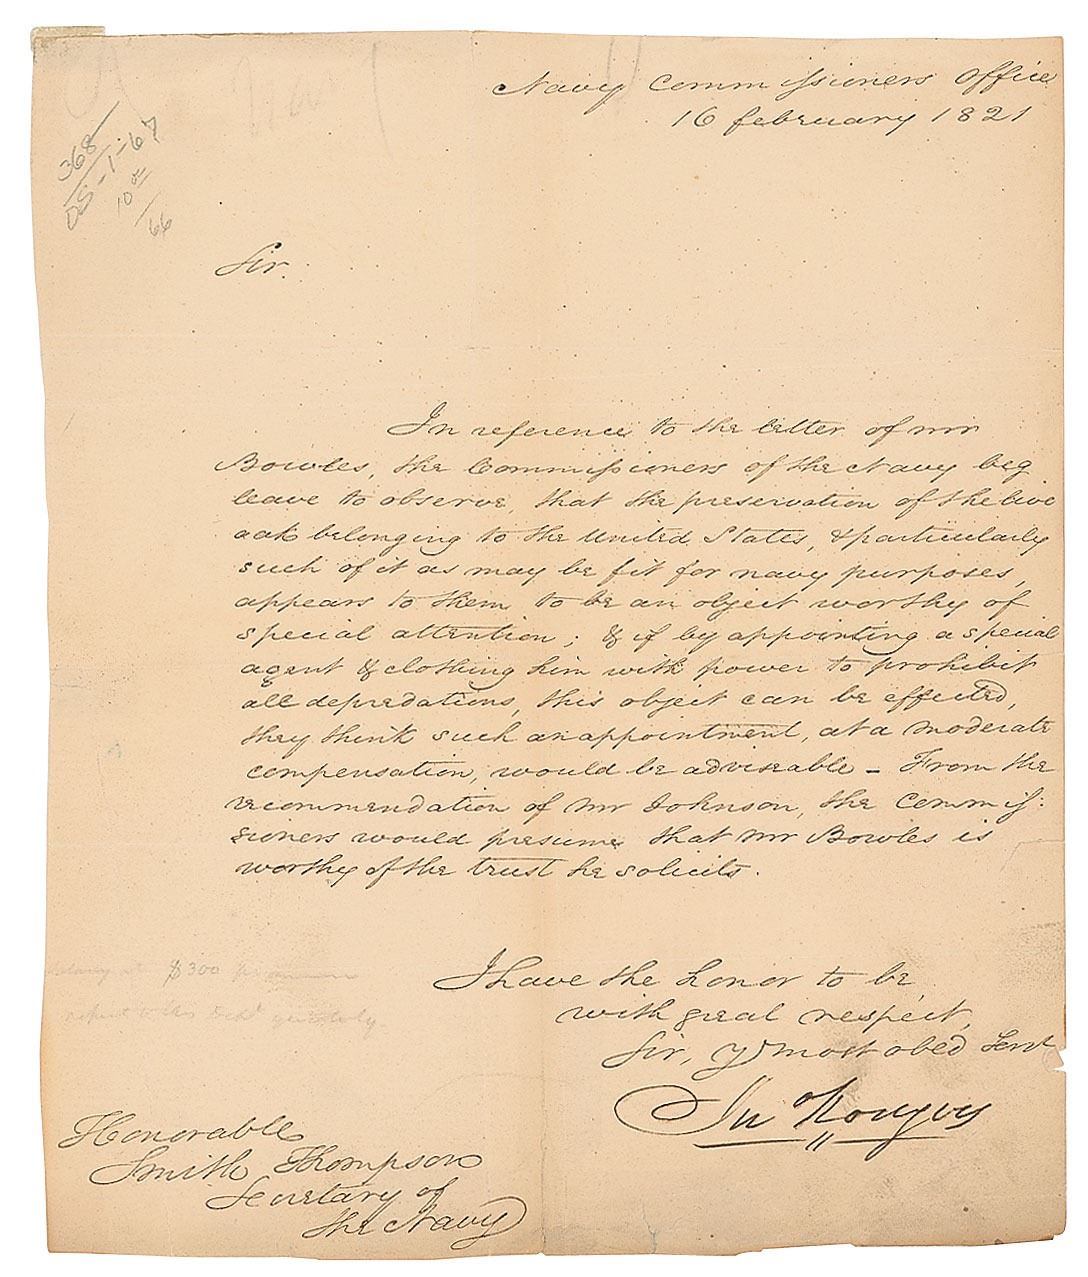 Navy Commissioners Office
16 february 1821
368
DS-1-67
10 00
66
Sir.
In reference to the letter of mr
Bowles, the Commissioners of the Navy beg
leave to observe, that the preservation of the live
oak belonging to the United States, & particularly
such of it as may be fit for navy purposes,
appears to them to be an object worthy of
special attention; & if by appointing a special
agent & clothing him with power to prohibit
all depredations, this object can be effected,
they think such an appointment, at a moderate
compensation, would be adviseable – From the
recommendation of mr Johnson, the Commis:
sioners would presume that mr Bowles is
worthy of the trust he solicits.
$300
I have the honor to be
with great respect,
Sir, yr most obed Servt
Jn Rodgers
Honorable
Smith Thompson
Secretary of
the Navy